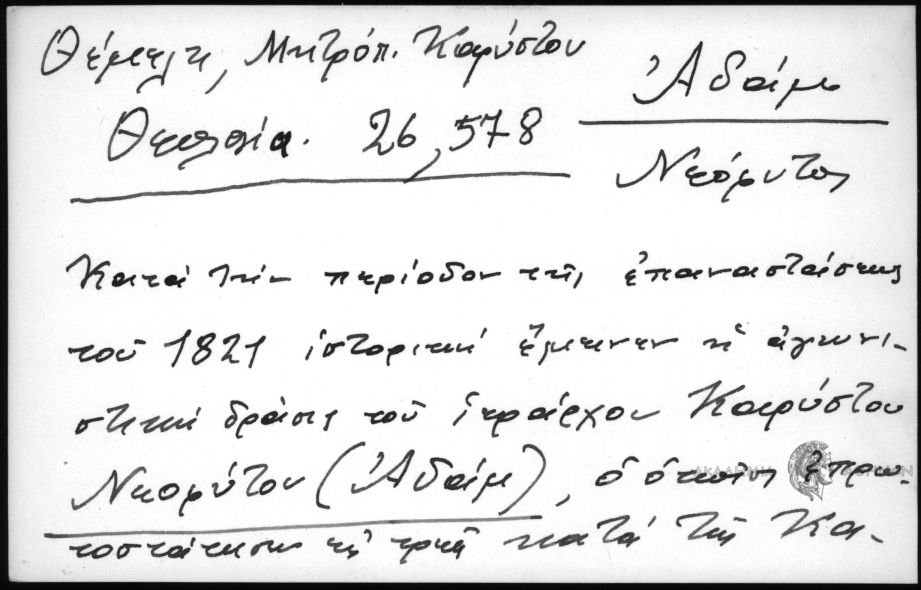 Θέμελη, Μητρόπ. Καρύστου
Θεολογία. 26, 578
Ἀδάμ
Νεόφυτος
Κατὰ τὴν περίοδον τῆς ἐπαναστάσεως
τοῦ 1821 ἱστορικὴ ἔμεινεν ἡ ἀγωνι-
στικὴ δρᾶσις τοῦ ἱεράρχου Καρύστου
Νεοφύτου (Ἀδάμ), ὁ ὁποῖος ἐπρω-
τοστάτησεν εἰς τὴν κατὰ τῆς Κα-